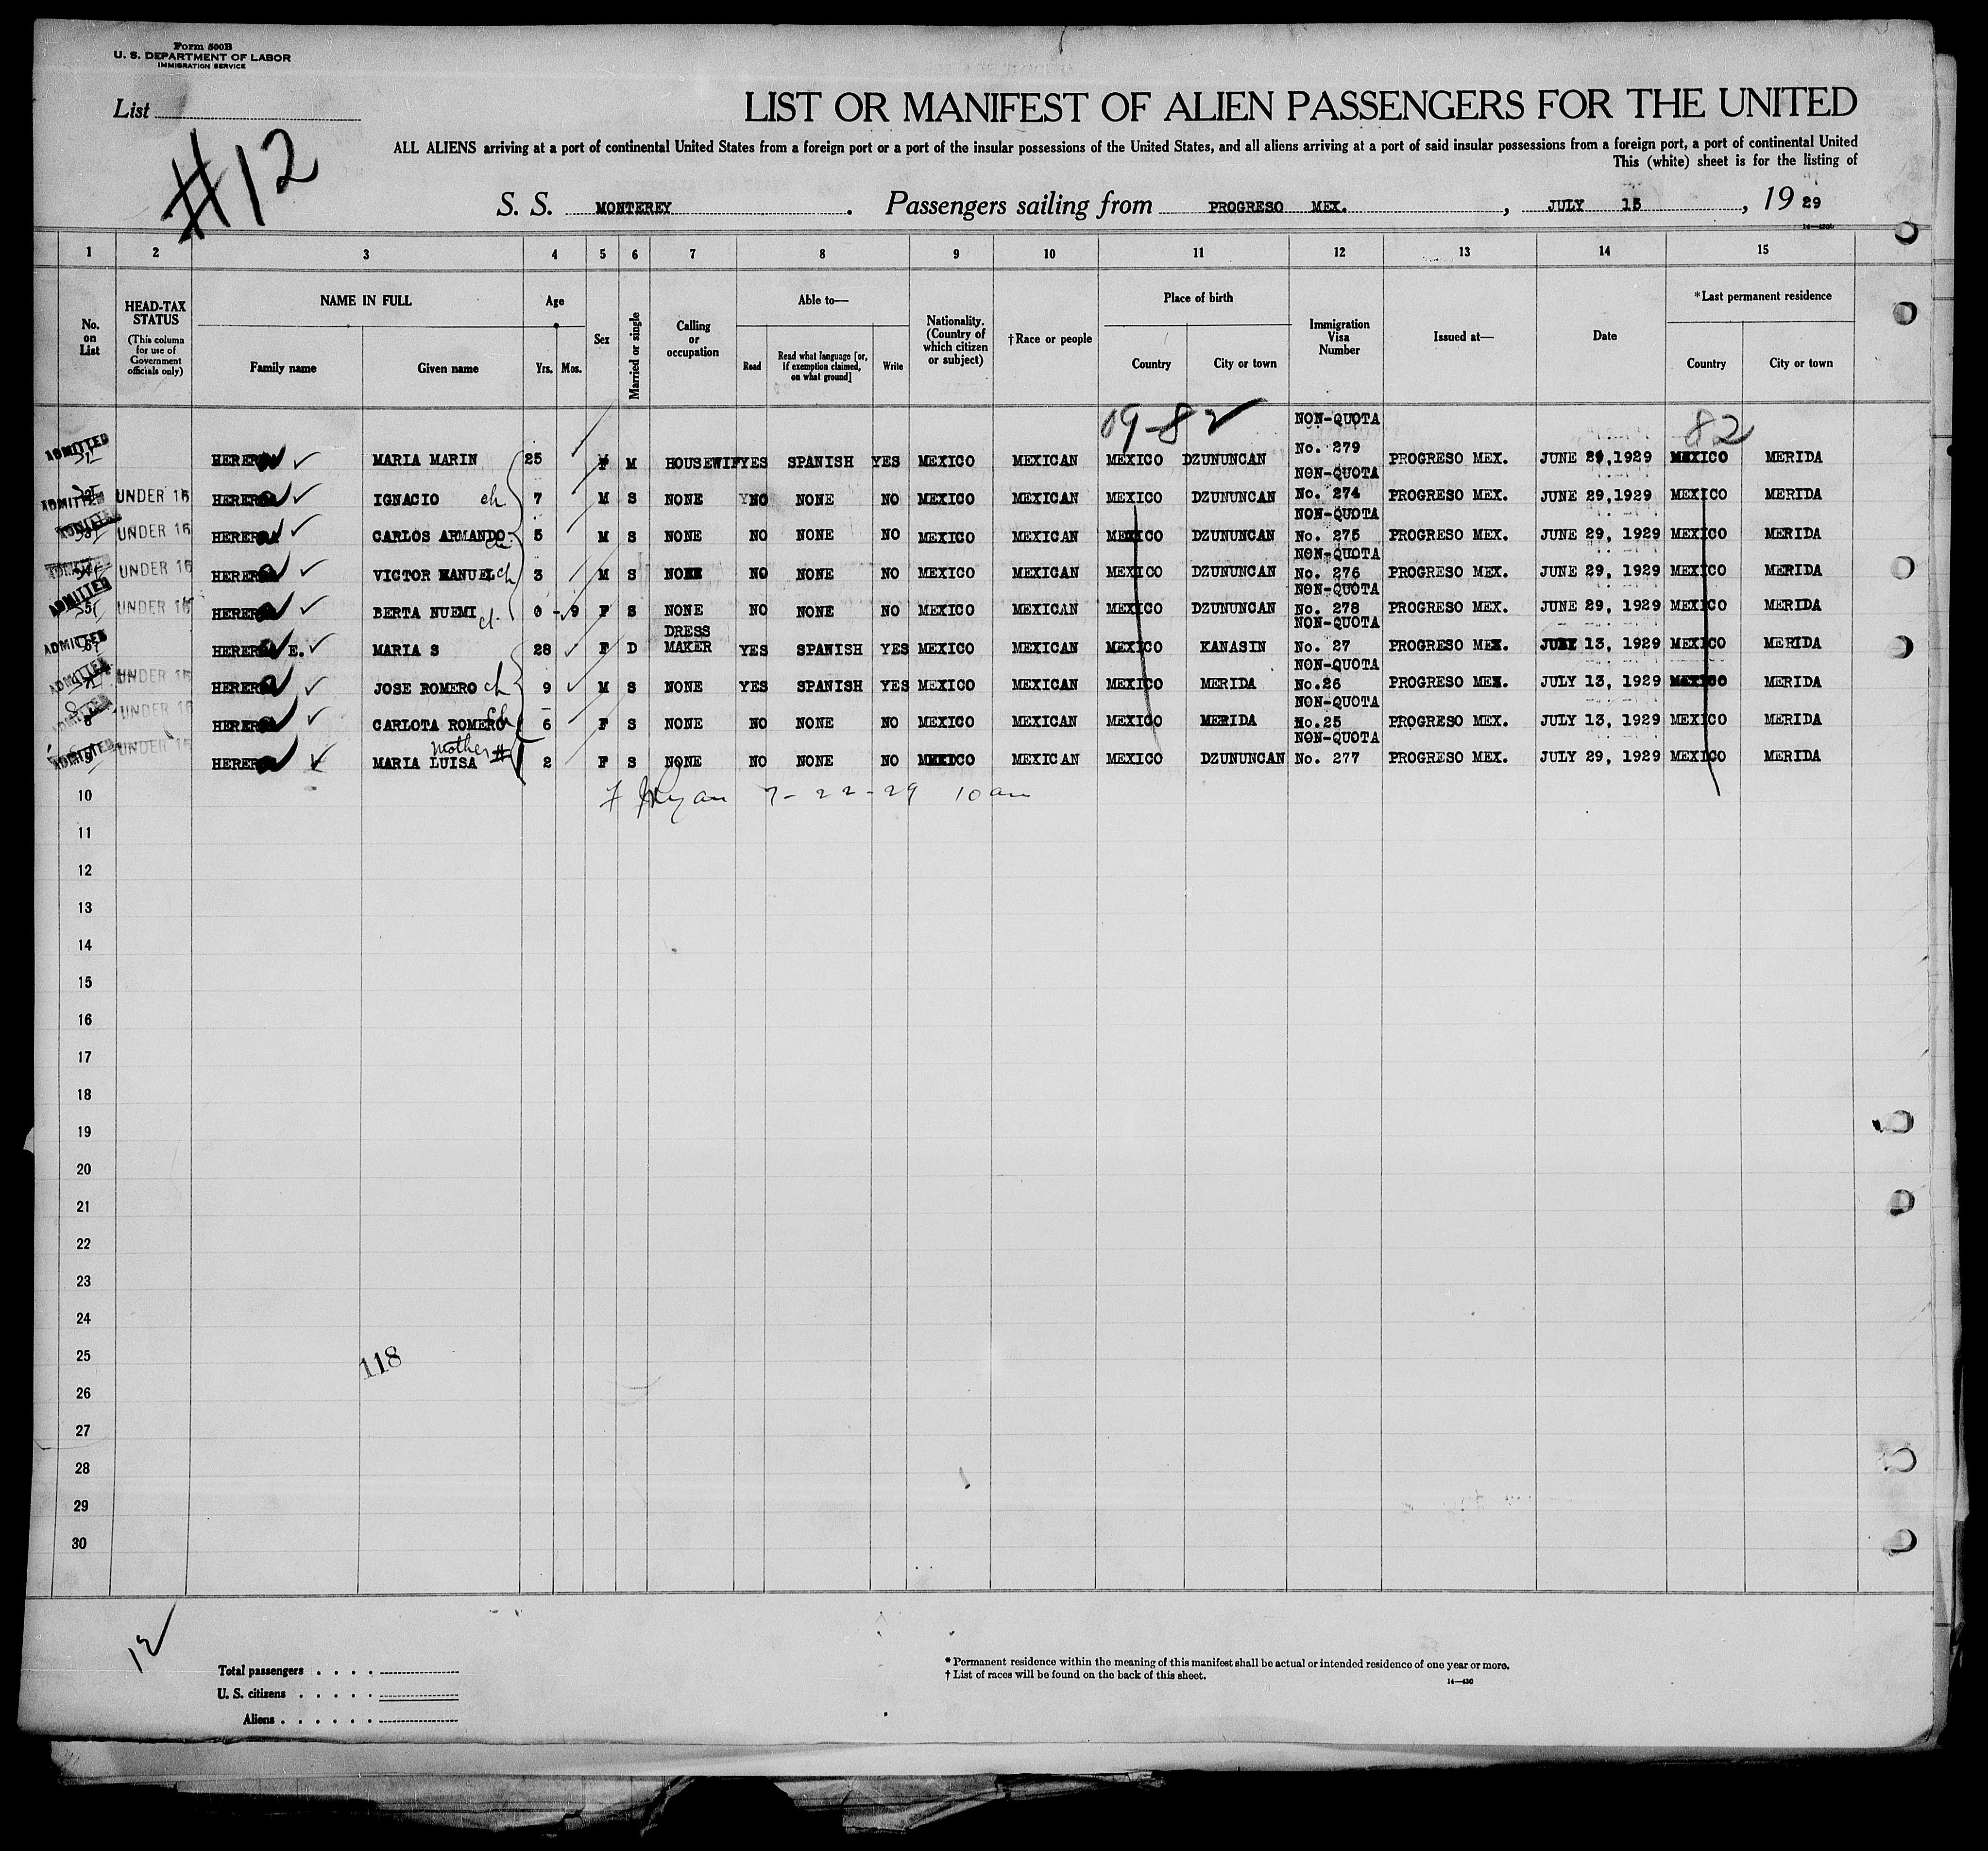 Form 500B
U. S. DEPARTMENT OF LABOR
IMMIGRATION SERVICE
List
#12
LIST OR MANIFEST OF ALIEN PASSENGERS FOR THE UNITED
ALL ALIENS arriving at a port of continental United States from a foreign port or a port of the insular possessions of the United States, and all aliens arriving at a port of said insular possessions from a foreign port, a port of continental United
This (white) sheet is for the listing of
S. S. MONTEREY. Passengers sailing from PROGRESO MEX., JULY 15, 1929
14—430b
1 2 3 4 5 6 7 8 9 10 11 12 13 14 15
No. on List
HEAD-TAX STATUS (This column for use of Government officials only)
NAME IN FULL Family name Given name
Age Yrs. Mos.
Sex
Married or single
Calling or occupation
Able to— Read Read what language [or, if exemption claimed, on what ground] Write
Nationality. (Country of which citizen or subject)
†Race or people
Place of birth Country City or town
Immigration Visa Number
Issued at—
Date
*Last permanent residence Country City or town
09-82 NON-QUOTA 82
ADMITTED HERERA MARIA MARIN 25 F M HOUSEWIF YES SPANISH YES MEXICO MEXICAN MEXICO DZUNUNCAN No. 279 PROGRESO MEX. JUNE 29,1929 MEXICO MERIDA
NON-QUOTA
ADMITTED UNDER 16 HERERA IGNACIO ch 7 M S NONE NO NONE NO MEXICO MEXICAN MEXICO DZUNUNCAN No. 274 PROGRESO MEX. JUNE 29,1929 MEXICO MERIDA
NON-QUOTA
ADMITTED UNDER 16 HERERA CARLOS ARMANDO ch 5 M S NONE NO NONE NO MEXICO MEXICAN MEXICO DZUNUNCAN No. 275 PROGRESO MEX. JUNE 29, 1929 MEXICO MERIDA
NON-QUOTA
ADMITTED UNDER 16 HERERA VICTOR MANUEL ch 3 M S NONE NO NONE NO MEXICO MEXICAN MEXICO DZUNUNCAN No. 276 PROGRESO MEX. JUNE 29, 1929 MEXICO MERIDA
NON-QUOTA
ADMITTED UNDER 16 HERERA BERTA NUEMI ch 0 - 9 F S NONE NO NONE NO MEXICO MEXICAN MEXICO DZUNUNCAN No. 278 PROGRESO MEX. JUNE 29, 1929 MEXICO MERIDA
NON-QUOTA
ADMITTED HERERA E. MARIA S 28 F D DRESS MAKER YES SPANISH YES MEXICO MEXICAN MEXICO KANASIN No. 27 PROGRESO MEX. JULY 13, 1929 MEXICO MERIDA
NON-QUOTA
ADMITTED UNDER 16 HERERA JOSE ROMERO ch 9 M S NONE YES SPANISH YES MEXICO MEXICAN MEXICO MERIDA No.26 PROGRESO MEX. JULY 13, 1929 MEXICO MERIDA
NON-QUOTA
ADMITTED UNDER 16 HERERA CARLOTA ROMERO ch 6 F S NONE NO NONE NO MEXICO MEXICAN MEXICO MERIDA No.25 PROGRESO MEX. JULY 13, 1929 MEXICO MERIDA
mother #1 NON-QUOTA
ADMITTED UNDER 16 HERERA MARIA LUISA 2 F S NONE NO NONE NO MEXICO MEXICAN MEXICO DZUNUNCAN No. 277 PROGRESO MEX. JULY 29, 1929 MEXICO MERIDA
10 7-22-29 10 am
11
12
13
14
15
16
17
18
19
20
21
22
23
24
25
118
26
27
28
29
30
12
Total passengers
U. S. citizens
Aliens
*Permanent residence within the meaning of this manifest shall be actual or intended residence of one year or more.
†List of races will be found on the back of this sheet.
14—430